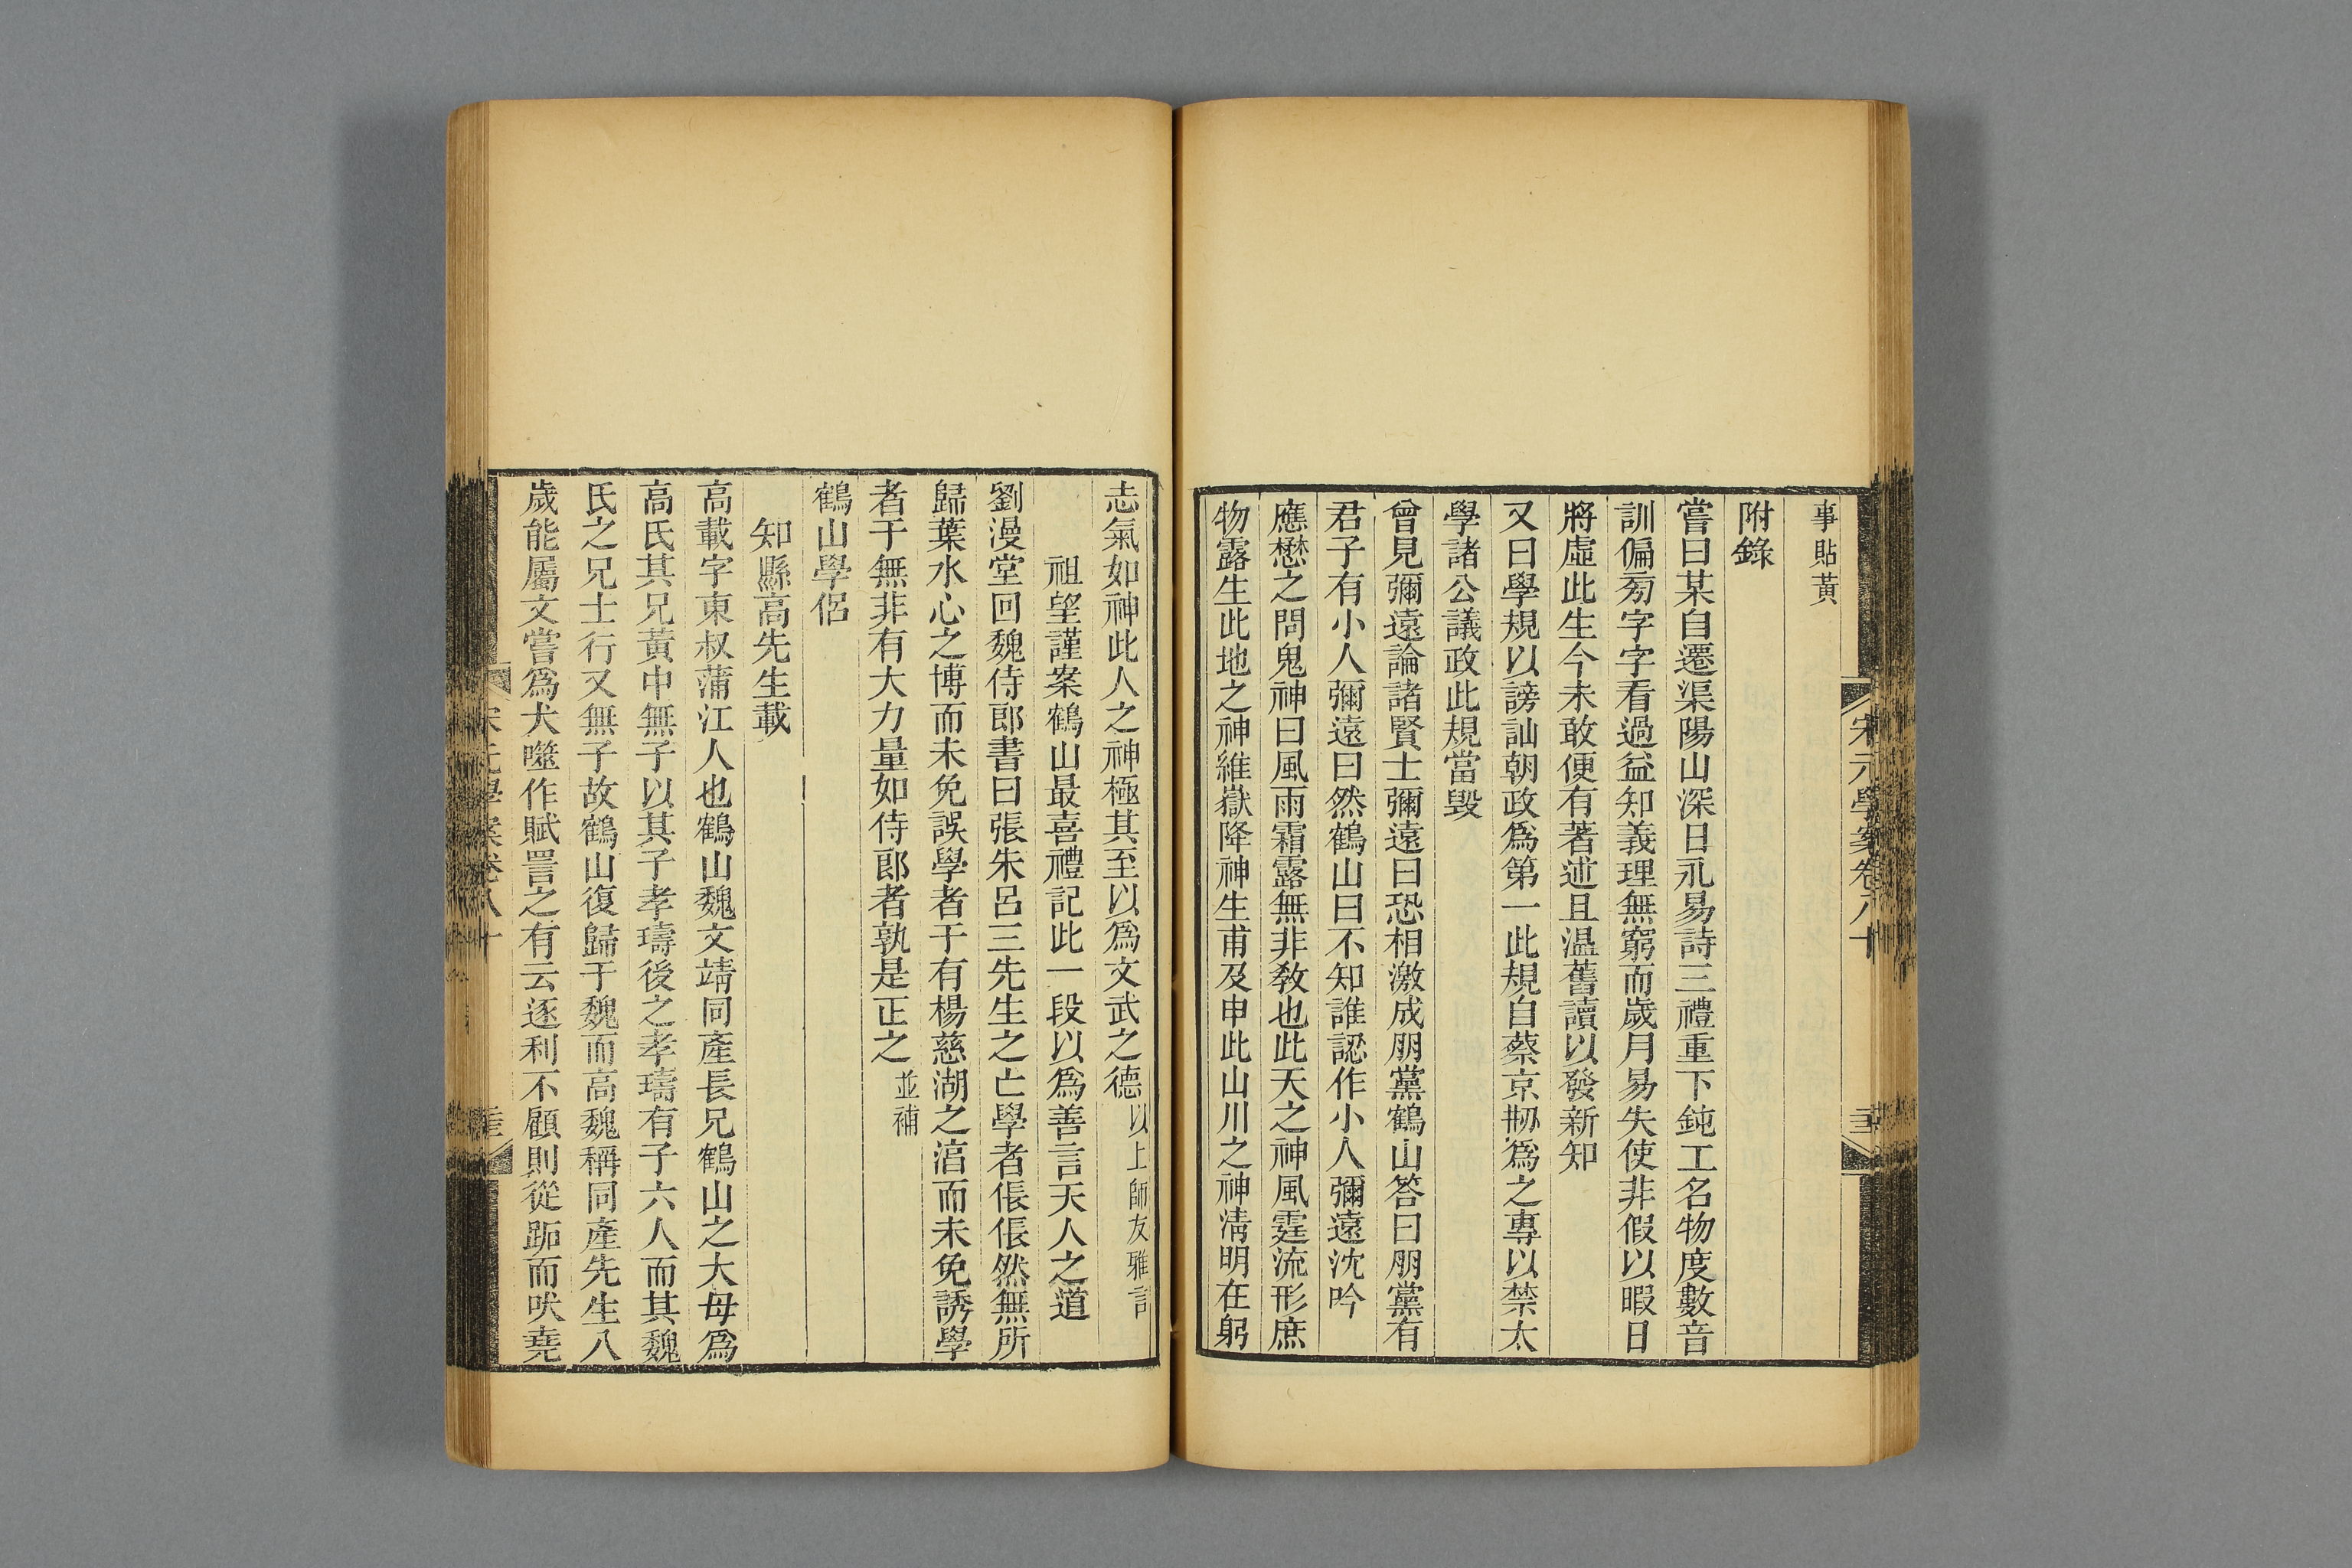 事貼黃
附錄
嘗曰某自遷渠陽山深日永易詩三禮重下鈍工名物度數音
訓偏㫄字字看過益知義理無窮而歲月易失使非假以暇日
將虛此生今未敢便有著述且溫舊讀以發新知
又曰學規以謗訕朝政爲第一此規自蔡京刱爲之專以禁太
學諸公議政此規當毁
曾見彌遠論諸賢士彌遠曰恐相激成朋黨鶴山答曰朋黨有
君子有小人彌遠曰然鶴山曰不知誰認作小人彌遠沈吟
應懋之問鬼神曰風雨霜露無非敎也此天之神風霆流形庶
物露生此地之神維嶽降神生甫及申此山川之神淸明在躬
宋元學案卷八十
志氣如神此人之神極其至以爲文武之德以上師友雅言
祖望謹案鶴山最喜禮記此一段以爲善言天人之道
劉漫堂回魏侍郎書曰張朱呂三先生之亡學者倀倀然無所
歸葉水心之博而未免誤學者于有楊慈湖之湻而未免誘學
者于無非有大力量如侍郎者孰是正之並補
鶴山學侶
知縣高先生載
高載字東叔蒲江人也鶴山魏文靖同產長兄鶴山之大母爲
高氏其兄黃中無子以其子孝璹後之孝璹有子六人而其魏
氏之兄士行又無子故鶴山復歸于魏而高魏稱同產先生八
歲能屬文嘗爲犬噬作賦詈之有云逐利不顧則從跖而吠堯
宋元學案卷八十